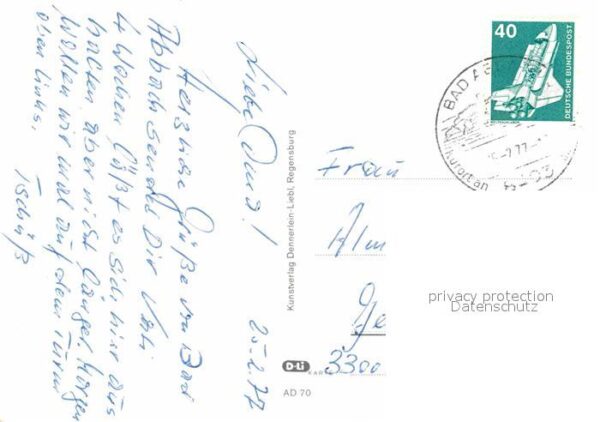 Liebe Oma!
25.2.77
Herzliche Grüße von Bad
Abbach sendet Dir
4 Wochen läßt es sich hier aus
halten, aber nicht länger. Morgen
wollen wir mal auf den Turm
oben links.
Tschüß
Kunstverlag Dennerlein-Liebl, Regensburg
D-Li
KARTE
AD 70
40
DEUTSCHE BUNDESPOST
BAD AB
Kurort an
Frau
3300
privacy protection
Datenschutz